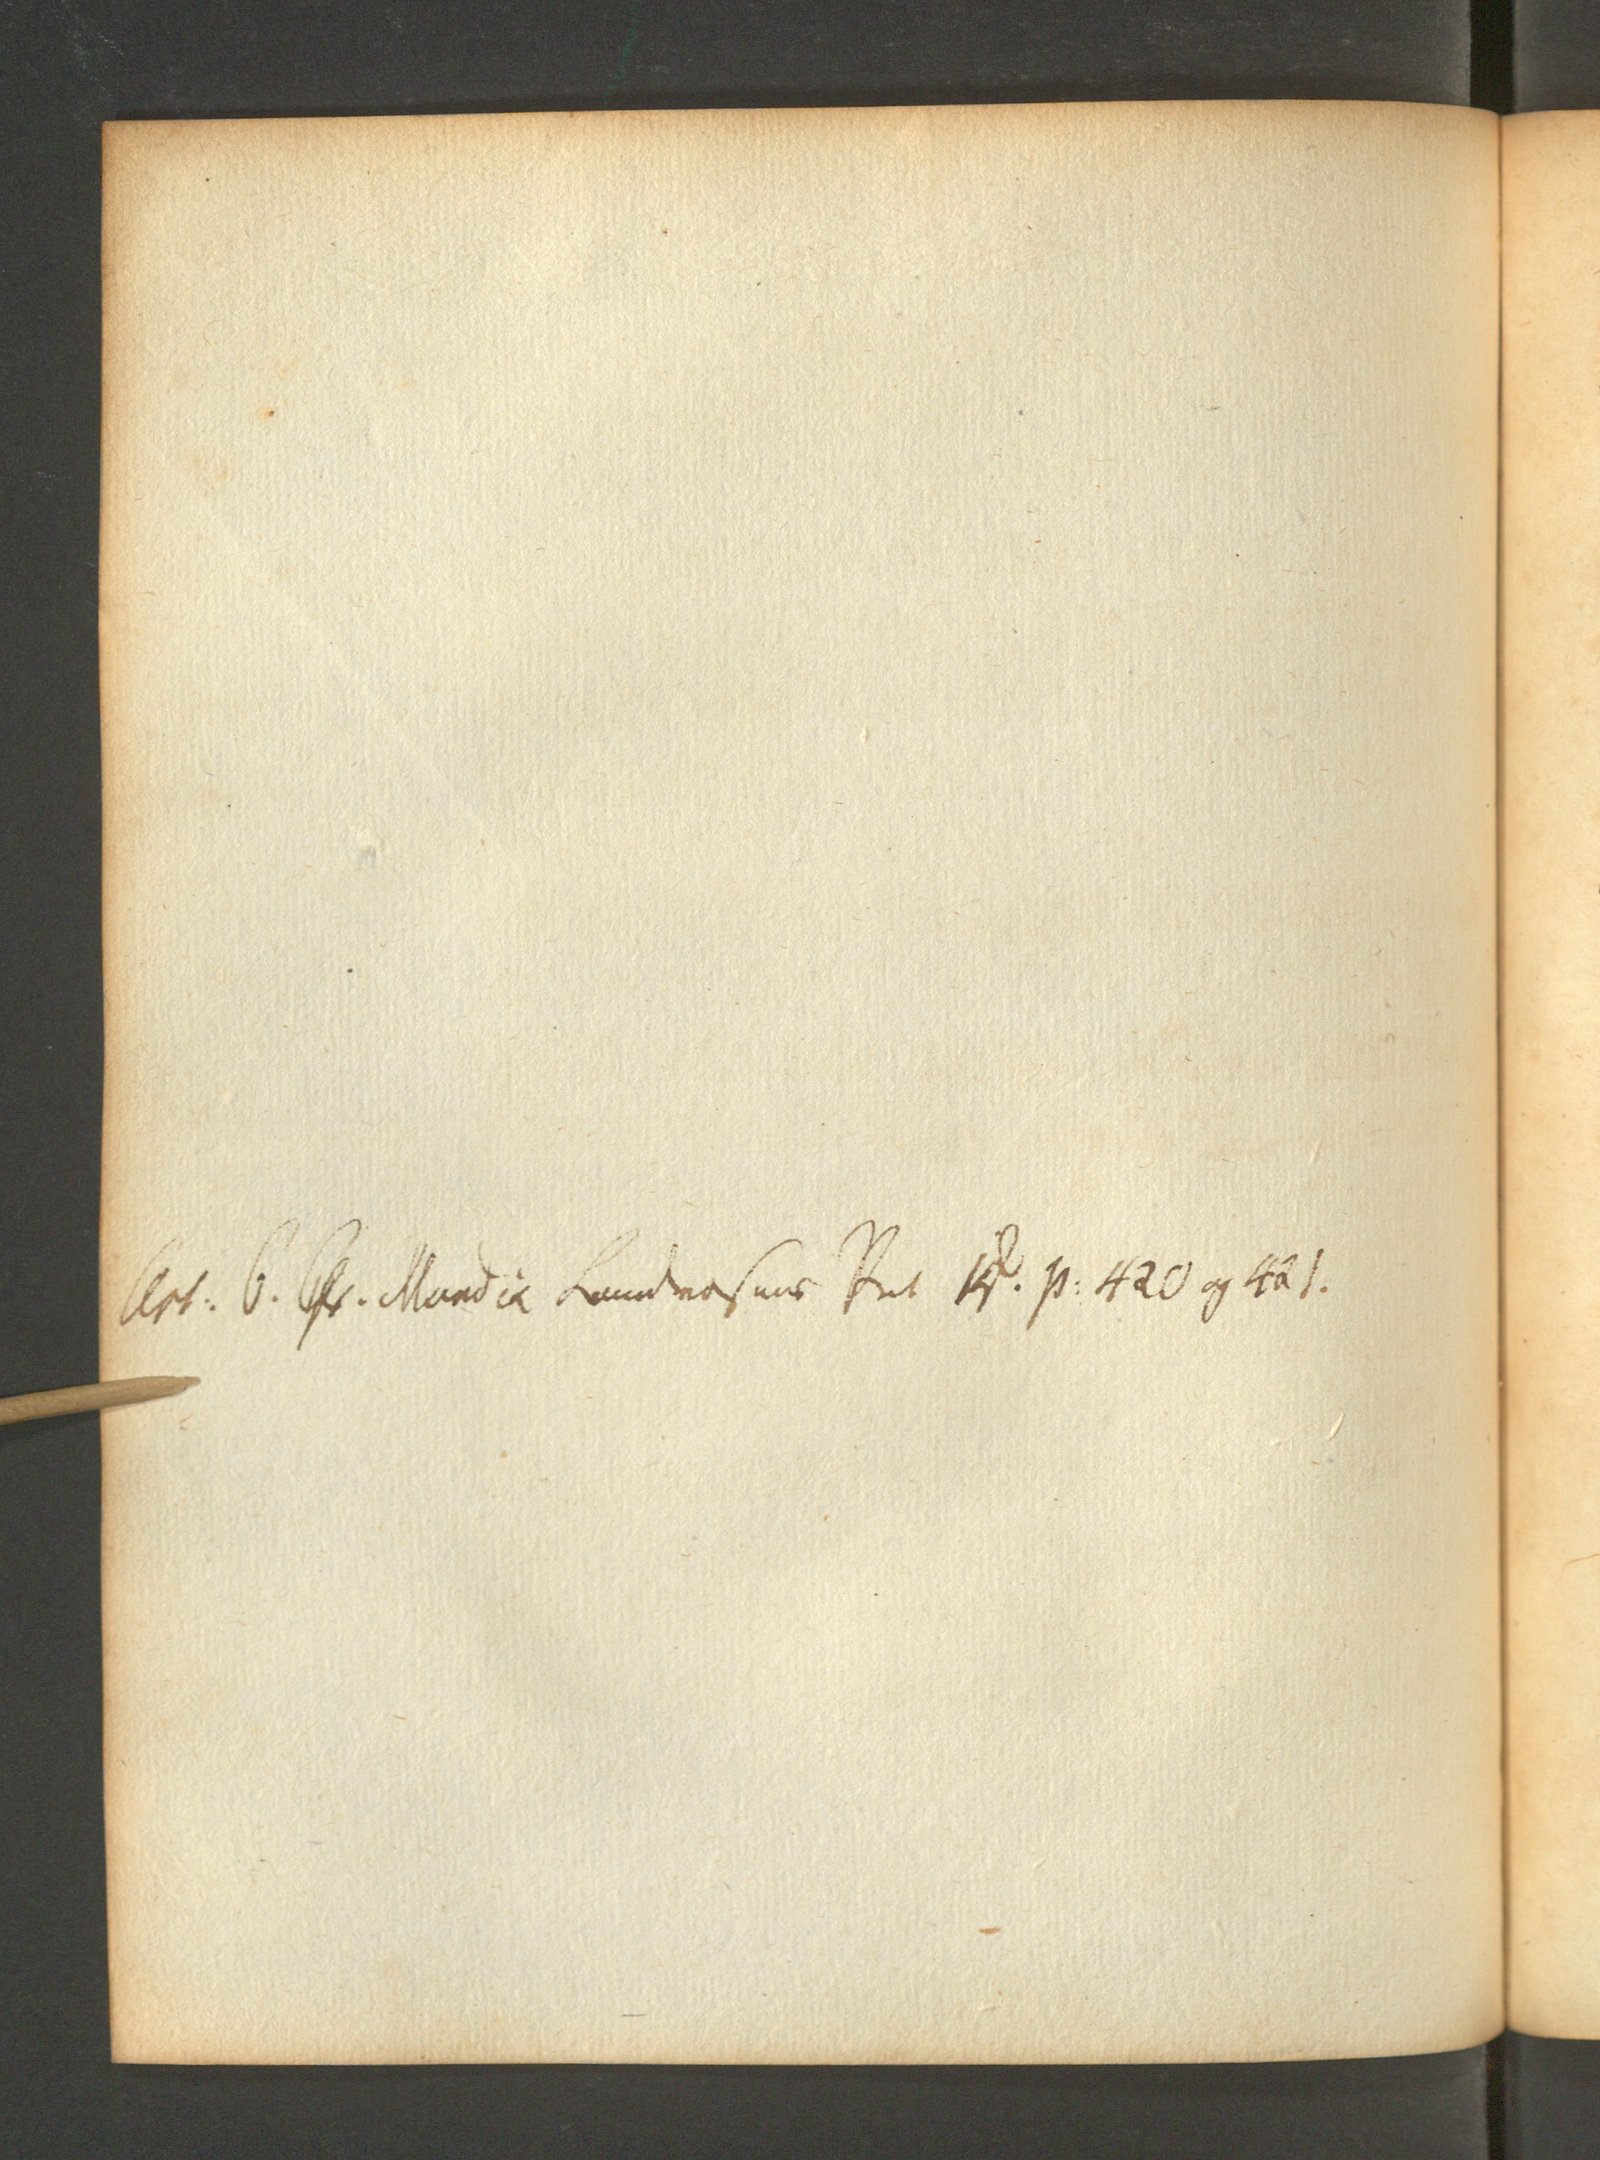 Art: 6. Chr. Mundix Landvæsens Ret 4º. p: 420 og 421.